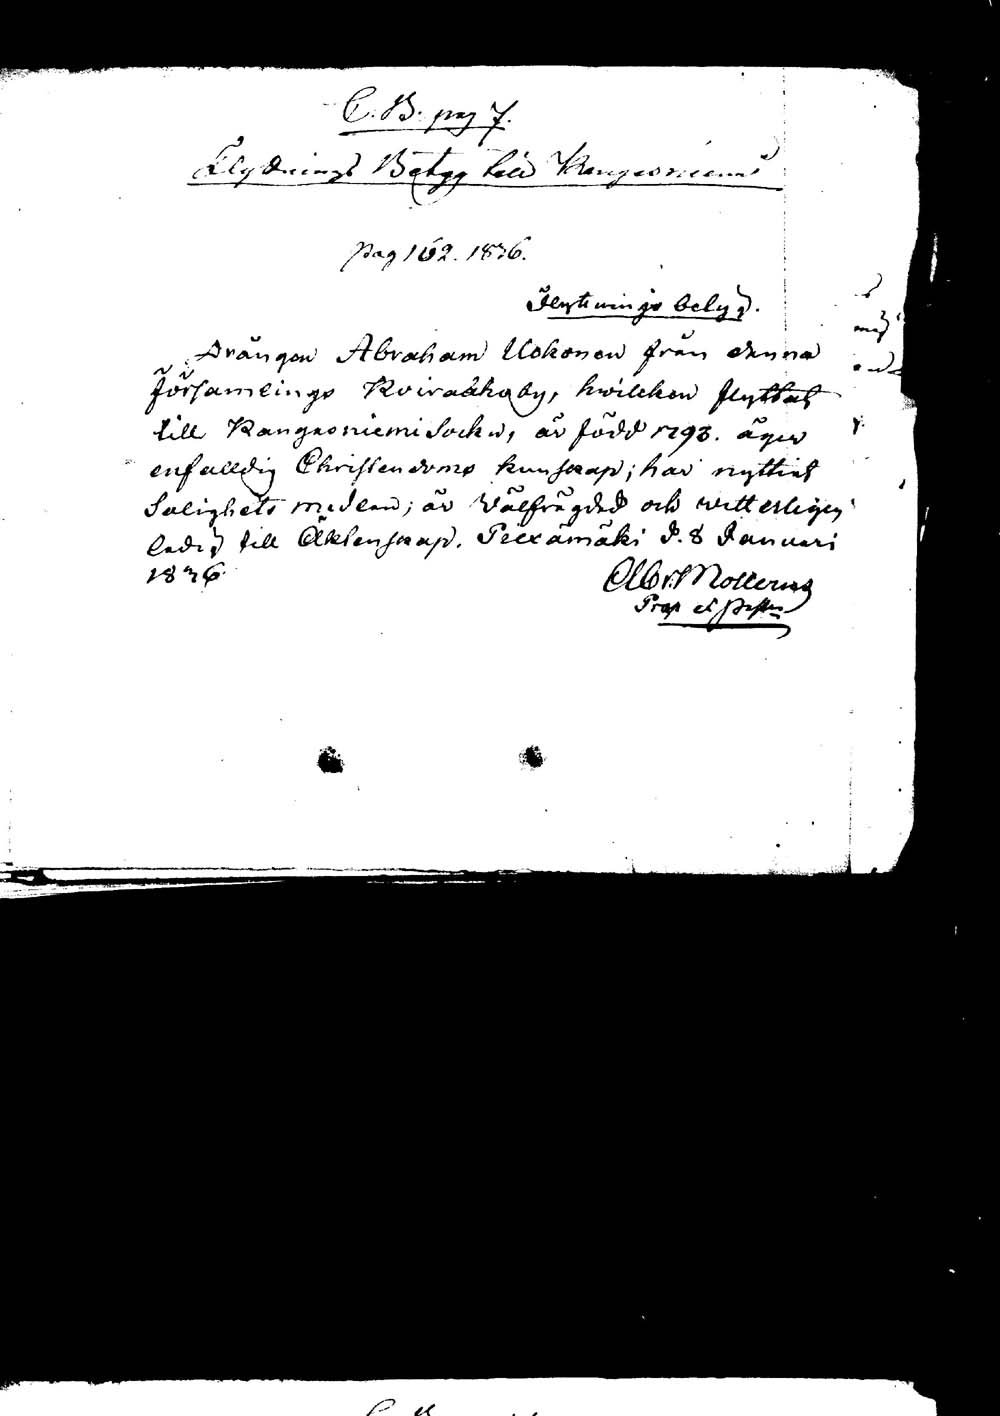 C. B. pag 7.
Flyttnings Betyg till Kangasniemi
pag 162. 1836.
Flyttnings betyg.
Drängen Abraham Uokonen från denna
församlings Kvirašhaby, hwilcken flyttat
till Kangasniemi Sockn, är född 1793. äger
enfalldig Christendoms kunskap; har nyttiat
Salighets medlen; är Välfrägdad och witterligen
ledig till Äktenskap. Piexämäki d. 8 Januari
1836.
Prap et past